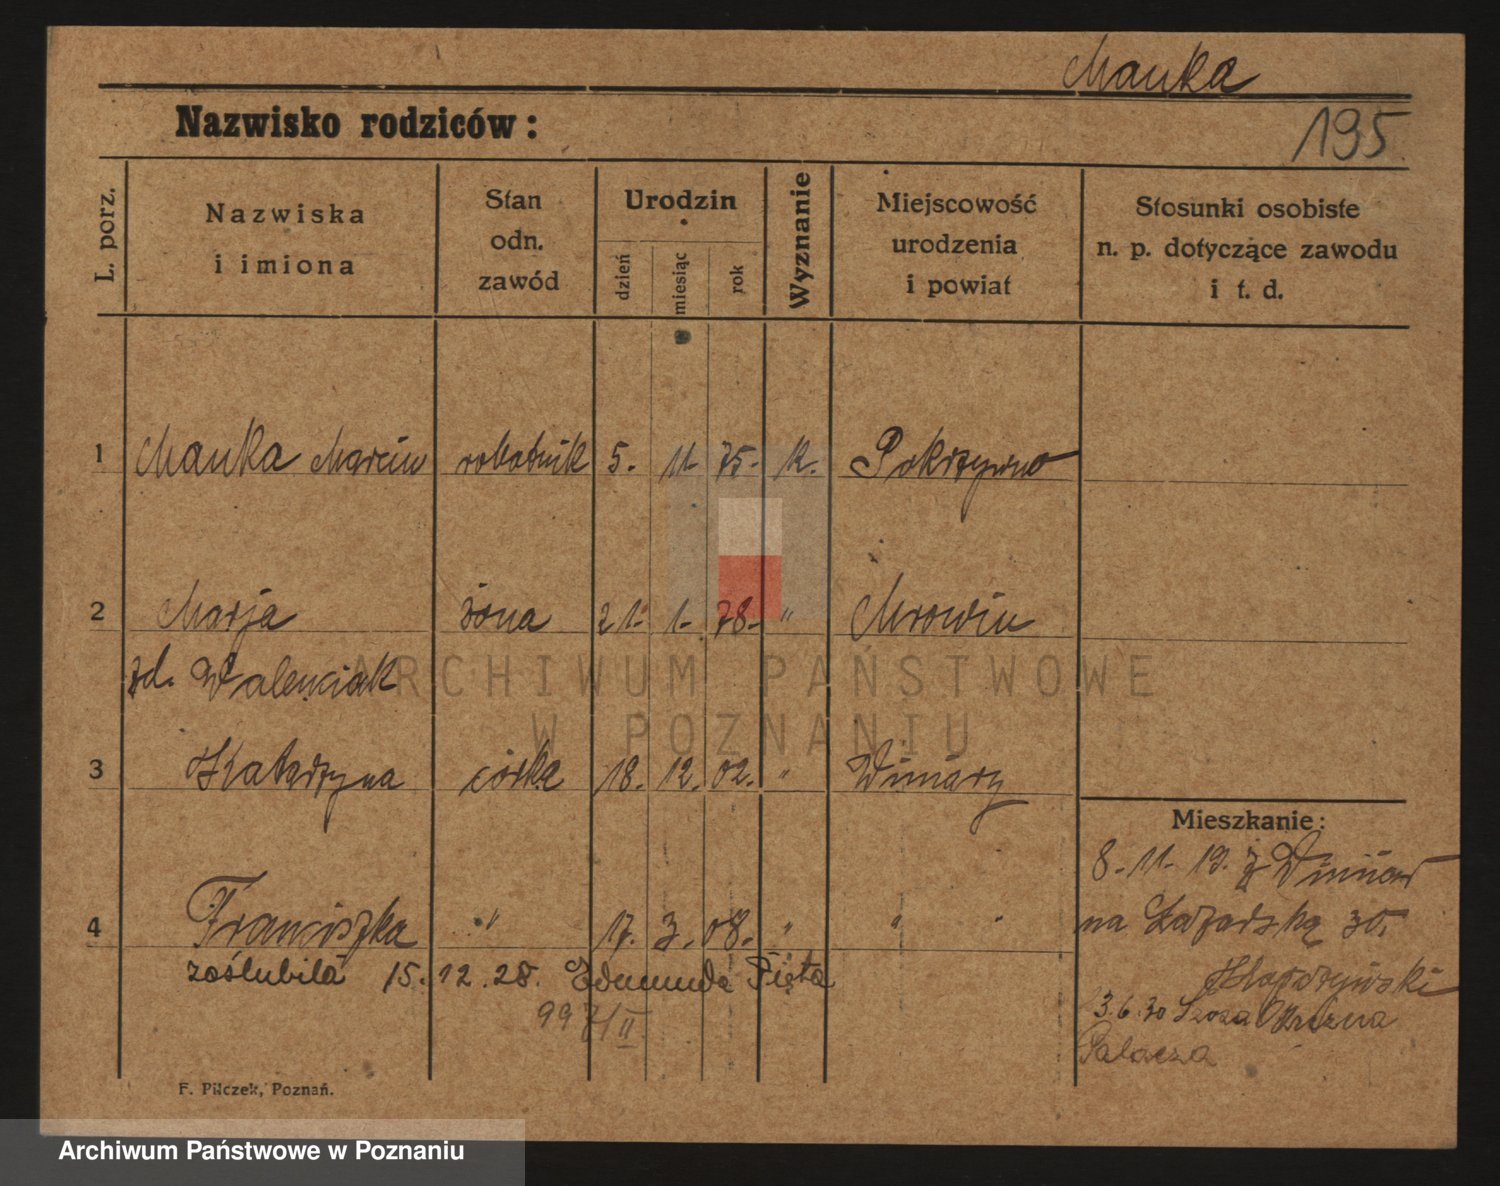 Manka
Nazwisko rodziców:
195.
L. porz.
Nazwiska
i imiona
Stan
odn.
zawód
Urodzin
dzień
miesiąc
rok
Wyznanie
Miejscowość
urodzenia
i powiat
Stosunki osobiste
n. p. dotyczące zawodu
i t. d.
1 Manka Marcin robotnik 5. 11. 75. k. Pokrzywno
2 Marja żona 21. 1. 78. " Mrowin
zd. Walenciak
ARCHIWUM PAŃSTWOWE
W POZNANIU
3 Katarzyna córka 18. 12. 02. " Winiary
Mieszkanie:
8.-11.-19. z Winiar
4 Franciszka " 17. 3. 08. " " "
na Łazarską 30.
zaślubiła 15.12.28. Edmunda Pięta
3.6.30 Szosa Okrężna
997/II
Palacza
F. Pilczek, Poznań.
Archiwum Państwowe w Poznaniu